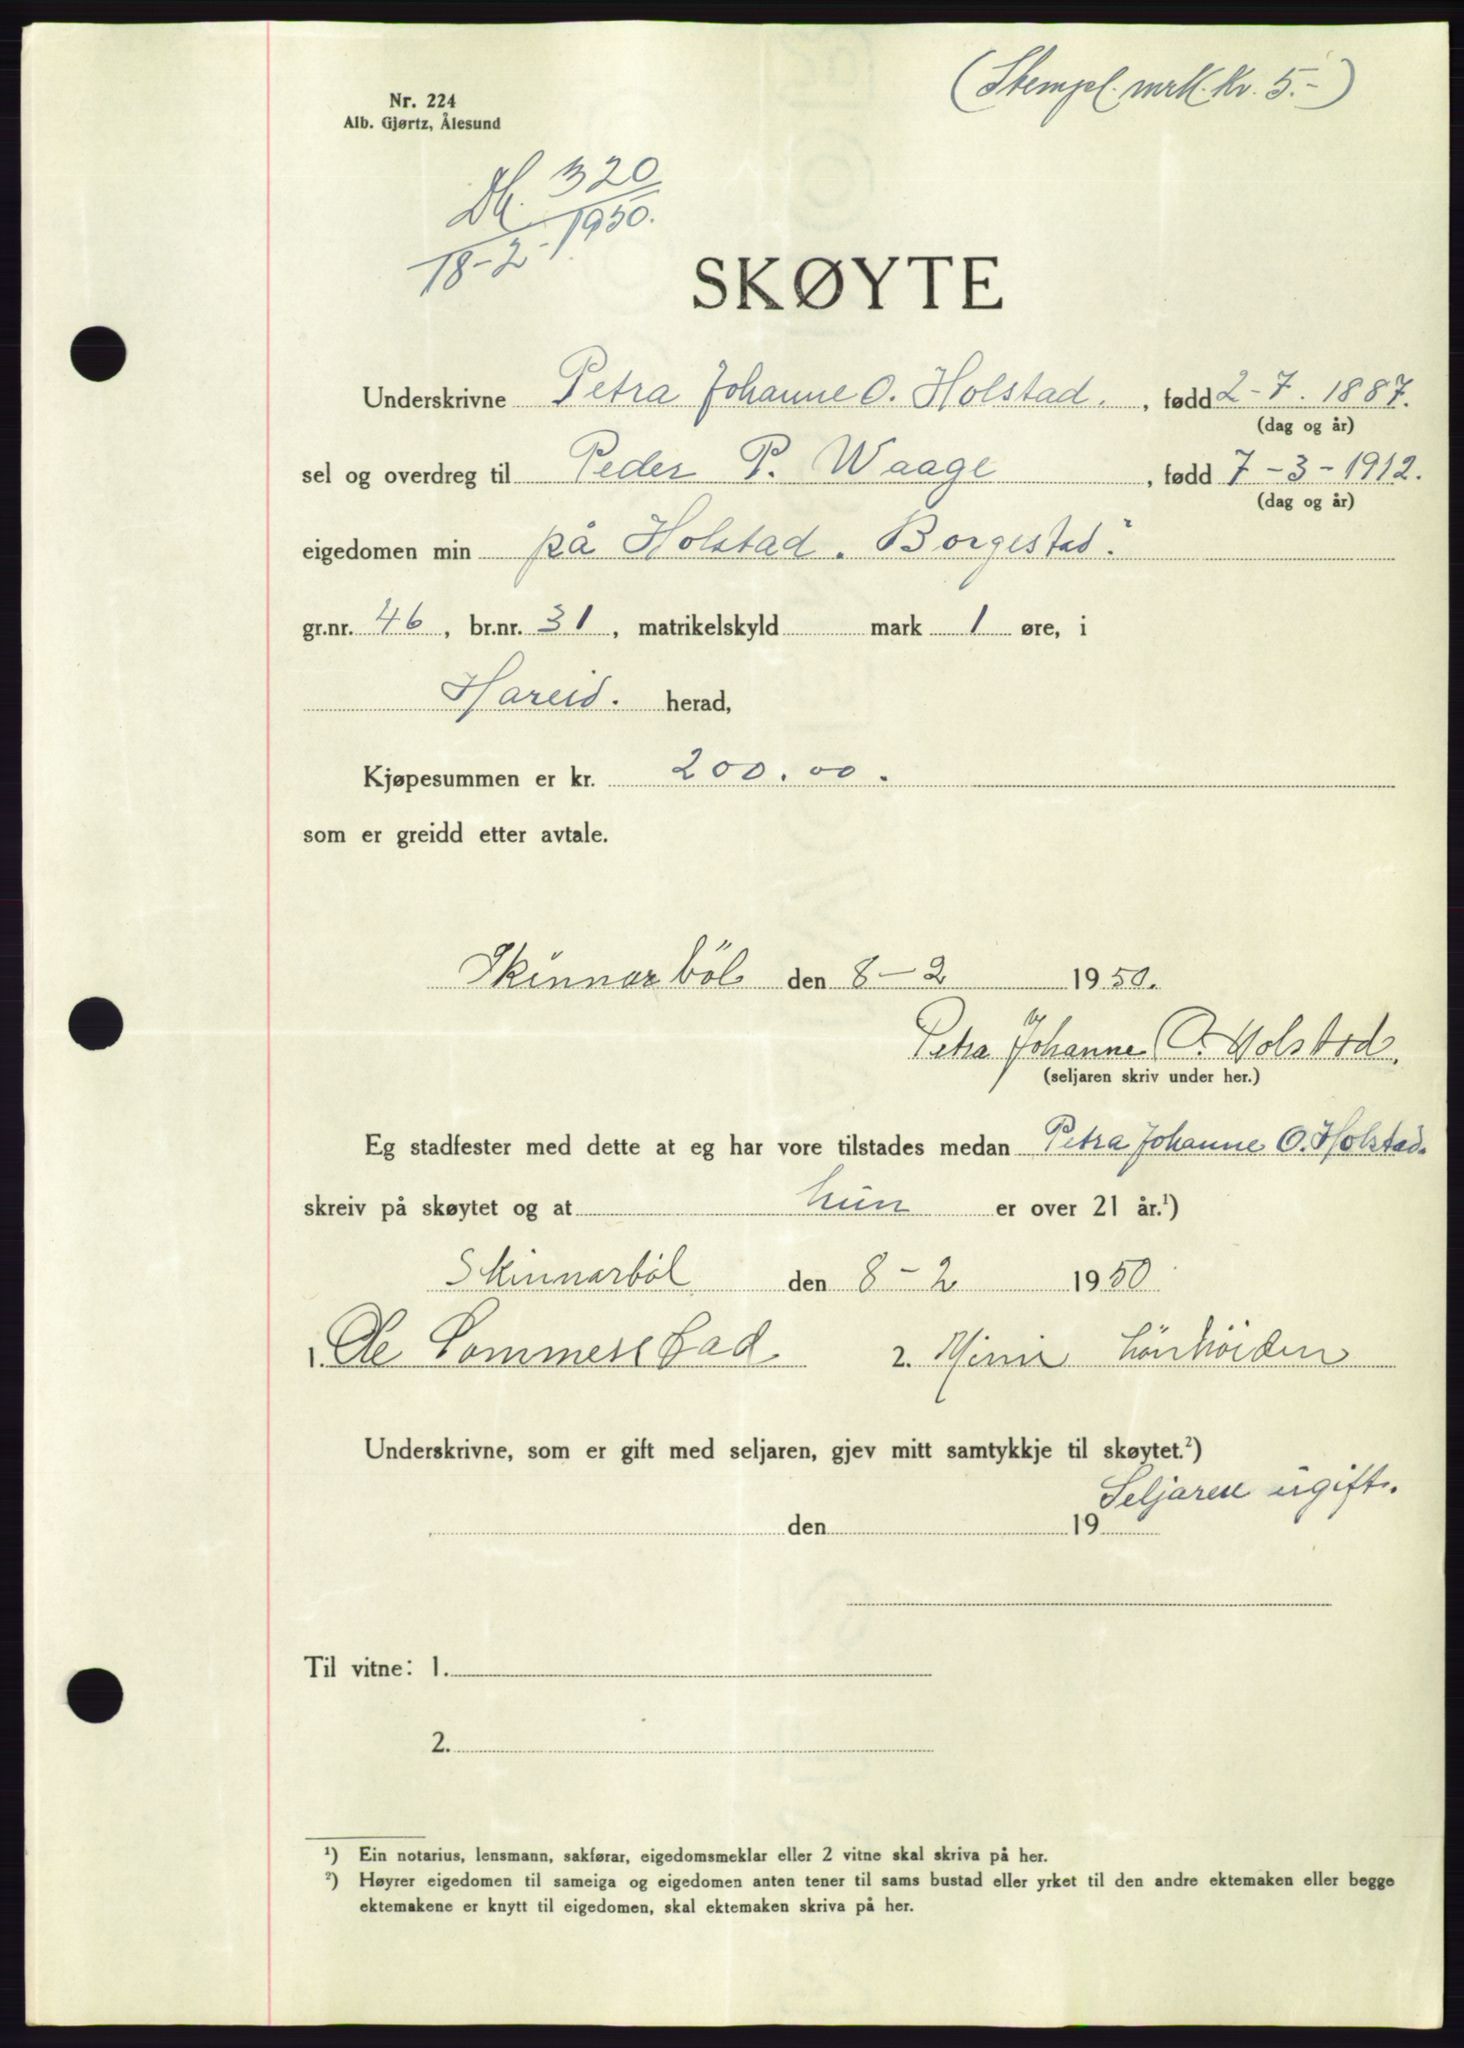 (Stempel. mrk. kr. 5.-)
Nr. 224
Alb. Gjørtz, Ålesund
Db. 320
18-2-1950.
SKØYTE
Underskrivne Petra Johanne O. Holstad. , fødd 2-7. 1887.
(dag og år)
sel og overdreg til Peder P. Waage , fødd 7-3-1912.
(dag og år)
eigedomen min på Holstad. Borgestad".
gr.nr. 46 , br.nr. 31 , matrikelskyld mark 1 øre, i
Hareid. herad,
Kjøpesummen er kr. 200.00.
som er greidd etter avtale.
Skinnarböl den 8-2 1950.
Petra Johanne O. Holstad.
(seljaren skriv under her.)
Eg stadfester med dette at eg har vore tilstades medan Petra Johanne O. Holstad.
skreiv på skøytet og at hun er over 21 år.¹)
Skinnarböl den 8-2 1950
1. Ole Sommerstad 2.
Underskrivne, som er gift med seljaren, gjev mitt samtykkje til skøytet.²)
Seljaren ugift.
den 19
Til vitne: 1.
2.
¹) Ein notarius, lensmann, sakførar, eigedomsmeklar eller 2 vitne skal skriva på her.
²) Høyrer eigedomen til sameiga og eigedomen anten tener til sams bustad eller yrket til den andre ektemaken eller begge
ektemakene er knytt til eigedomen, skal ektemaken skriva på her.